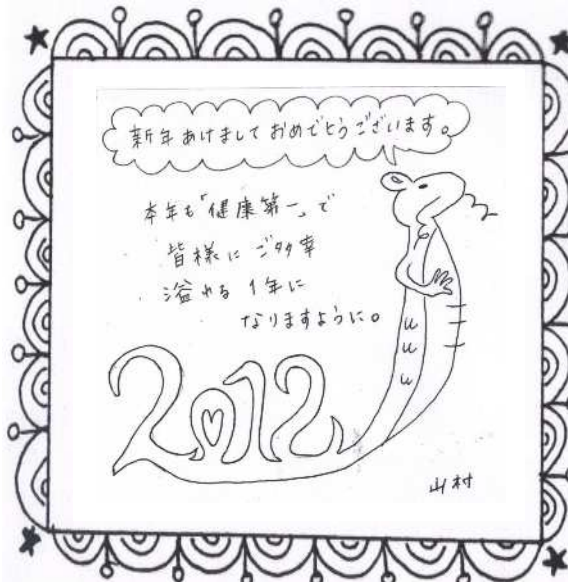 新年あけましておめでとうございます。
本年も「健康第一」で
皆様にご多幸
溢れる1年に
なりますように。
2012
山村